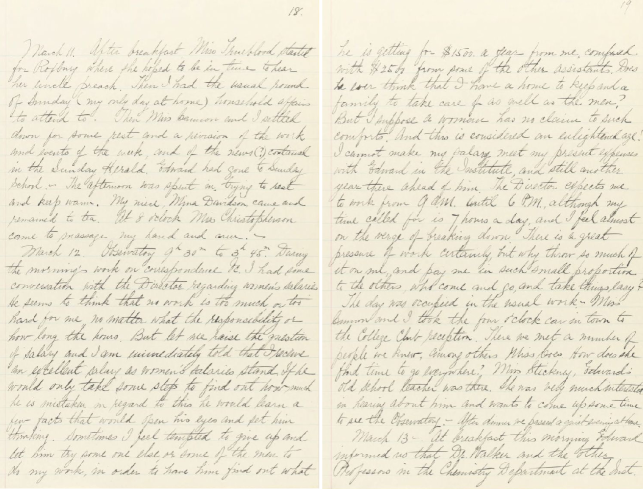 18.
March 11. After breakfast Miss Trueblood started
for Roxbury where she hoped to be in time to hear
her uncle preach. Then I had the usual round
of Sunday (my only day at home) household affairs
to attend to. Then Miss and I settled
down for some rest and a revision of the work
and events of the week, and of the news(?) contained
in the Sunday Herald. Edward had gone to Sunday
School. - The afternoon was spent in trying to rest
and keep warm. My niece Mina Davidson came and
remained to tea. At 8 o'clock Miss Christopherson
come to massage my hand and arm.
March 12 Observatory 9h 30m to 3h 45m. During
the morning work on correspondence &c I had some
conversation with the Director regarding women's salaries.
He seems to think that no work is too much or too
hard for me no matter what the responsibility or
how long the hours. But let me raise the question
of salary and I am immediately told that I receive
an excellent salary as women's salaries stand. If he
would only take some step to find out how much
he is mistaken in regard to this he would learn a
few facts that would open his eyes and set him
thinking. Sometimes I feel tempted to give up and
let him try some one else or some of the men to
do my work, in order to have him find out what
19
he is getting for $1500 a year from me, compared
with $2500 from some of the other assistants. Does
he ever think that I have a home to keep and a
family to take care of as well as the men?
But I suppose a woman has no claim to such
comforts. And this is considered an enlightened age!
I cannot make my salary meet my present expenses
with Edward in the Institute, and still another
year there ahead of him. The Director expects me
to work from 9 A.M. until 6 P.M. although my
time called for is 7 hours a day, and I feel almost
on the verge of breaking down. There is a great
pressure of work certainly but why throw so much of
it on me, and pay me in such small proportion
to the others, who come and go, and take things easy?
The day was occupied in the usual work - Miss
and I took the four o'clock car in town to
the College Club reception. There we met a number of
people we knew, among others How does she
find time to go everywhere? Miss Stickney, Edward's
old school teacher was there. She was very much interested
in hearing about him and wants to come up some time
to see the Observatory. - After dinner we passed a quiet evening at home.
March 13 - At breakfast this morning Edward
informed us that Dr. Walker and the other
Professors in the Chemistry Department at the Inst.